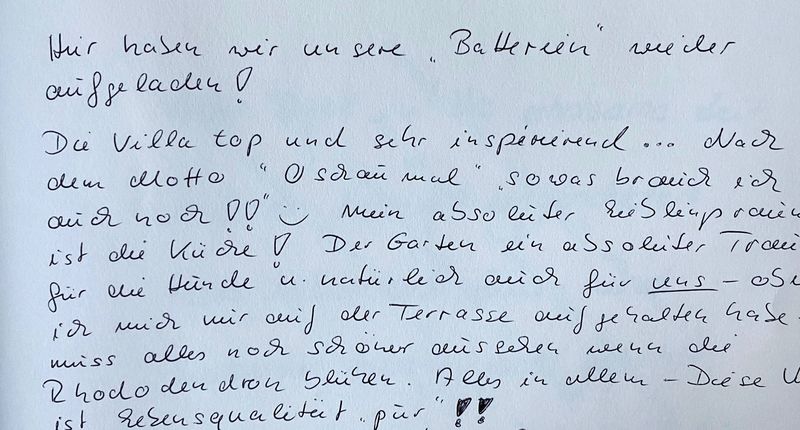 Hier haben wir unsere „Batterien" wieder
aufgeladen!
Die Villa top und sehr inspirierend... Nach
dem Motto "O schau mal" "sowas brauch ich
auch noch!!" :) Mein absoluter Lieblingsraum
ist die Küche! Der Garten ein absoluter Trau
für die Hunde u. natürlich auch für uns – ob
ich mich nur auf der Terrasse aufgehalten habe.
muss alles noch schöner aussehen wenn die
Rhododendron blühen. Alles in allem – Diese
ist Lebensqualität „pur" !!